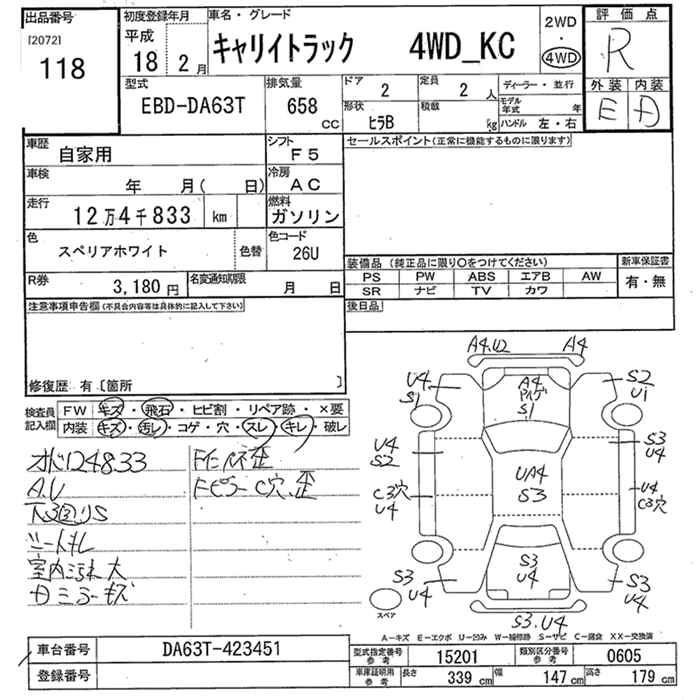 出品番号
[2072]
118
初度登録年月
平成
18 2 月
車名・グレード
キャリイトラック 4WD_KC
2WD
・
4WD
評価点
R
外装 内装
E D
型式
EBD-DA63T
排気量
658
CC
ドア
2
定員
2 人
形状
ヒラB
積載
kg
ディーラー・並行
モデル年式 年
ハンドル 左・右
車歴
自家用
シフト
F5
車検
年 月( 日)
冷房
AC
走行
12万4千833 km
燃料
ガソリン
色
スペリアホワイト
色替
色コード
26U
R券
3,180 円
名変通知期限
月 日
セールスポイント(正常に機能するものに限ります)
装備品 (純正品に限り○をつけてください)
PS PW ABS エアB AW
SR ナビ TV カワ
新車保証書
有・無
後日品
注意事項申告欄(不具合内容等は具体的に記入して下さい)
修復歴:有〔箇所 〕
検査員
記入欄
FW キズ・飛石・ヒビ割・リペア跡・×要
内装 キズ・汚レ・コゲ・穴・スレ・キレ・破レ
オド124833
A.U
下3回りS
シートキレ
室内汚れ大
Fピラー C穴、歪
A4.U2 A4
U4
S1
A4
S1
S2
U1
U4
S2
UA4
S3
S3
U4
C3穴
U4
U4
C3穴
S3
U4
S3
U4
S3
U4
S3.U4
スペア
A-キズ E-エクボ U-凹み W-補修跡 S-サビ C-腐食 XX-交換済
車台番号 DA63T-423451
登録番号
型式指定番号
参考
15201
類別区分番号
参考
0605
車庫証明用
参考
長さ 339 cm 幅 147 cm 高さ 179 cm